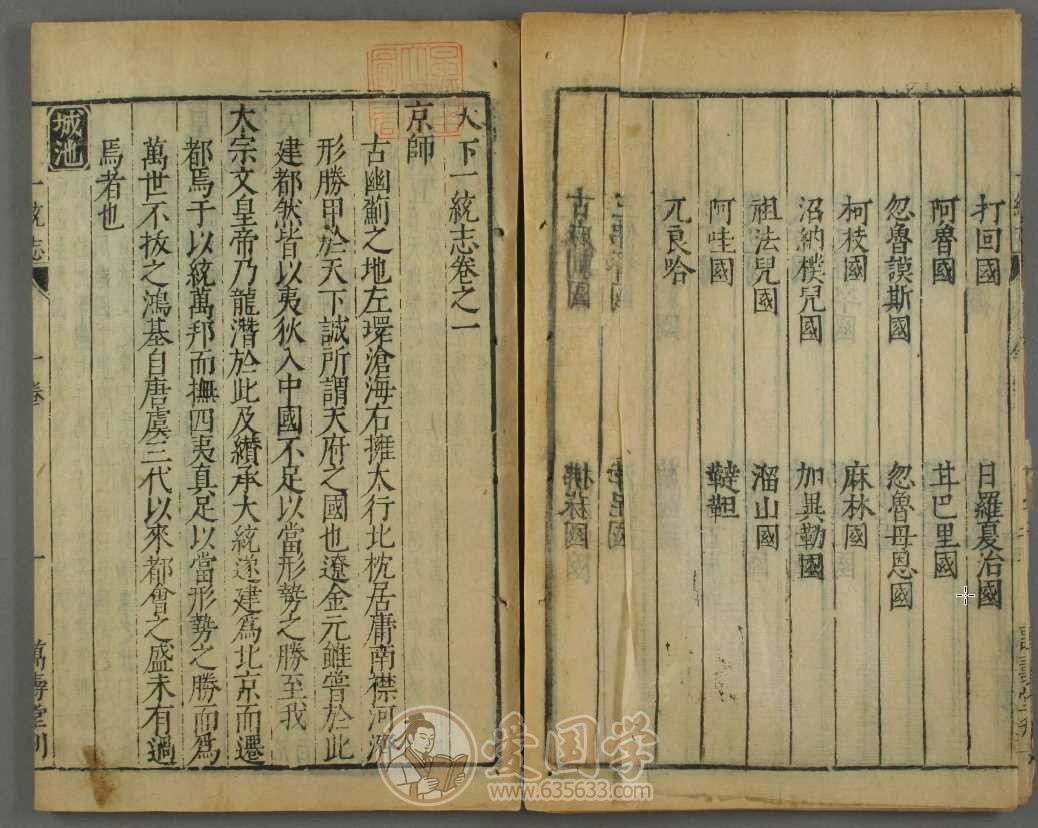 打回國 日羅夏治國
阿魯國 甘巴里國
忽魯謨斯國 忽魯母恩國
柯枝國 麻林國
沼納樸兒國 加異勒國
祖法兒國 溜山國
阿哇國 韃靼
兀良哈
古麻剌國
天下一統志卷之一
京師
古幽薊之地左環滄海右擁太行北枕居庸南襟河濟
形勝甲於天下誠所謂天府之國也遼金元雖嘗於此
建都然皆以夷狄入中國不足以當形勢之勝至我
太宗文皇帝乃龍潛於此及纘承大統遂建為北京而遷
都焉于以統萬邦而撫四夷真足以當形勢之勝而為
萬世不拔之鴻基自唐虞三代以來都會之盛未有過
焉者也
城池
一統志 一卷 一 萬壽堂刊
爱国学
www.635633.com